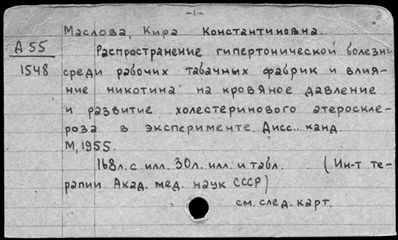 -1-
Маслова, Кира Константиновна.
А 55
1548
Распространение гипертонической болезни
среди рабочих табачных фабрик и влия-
ние никотина на кровяное давление
и развитие холестеринового атероскле-
роза в эксперименте. Дисс... канд.
М, 1955.
168л. с илл. 30л. илл. и табл. (Ин-т те-
рапии Акад. мед. наук СССР)
см. след. карт.